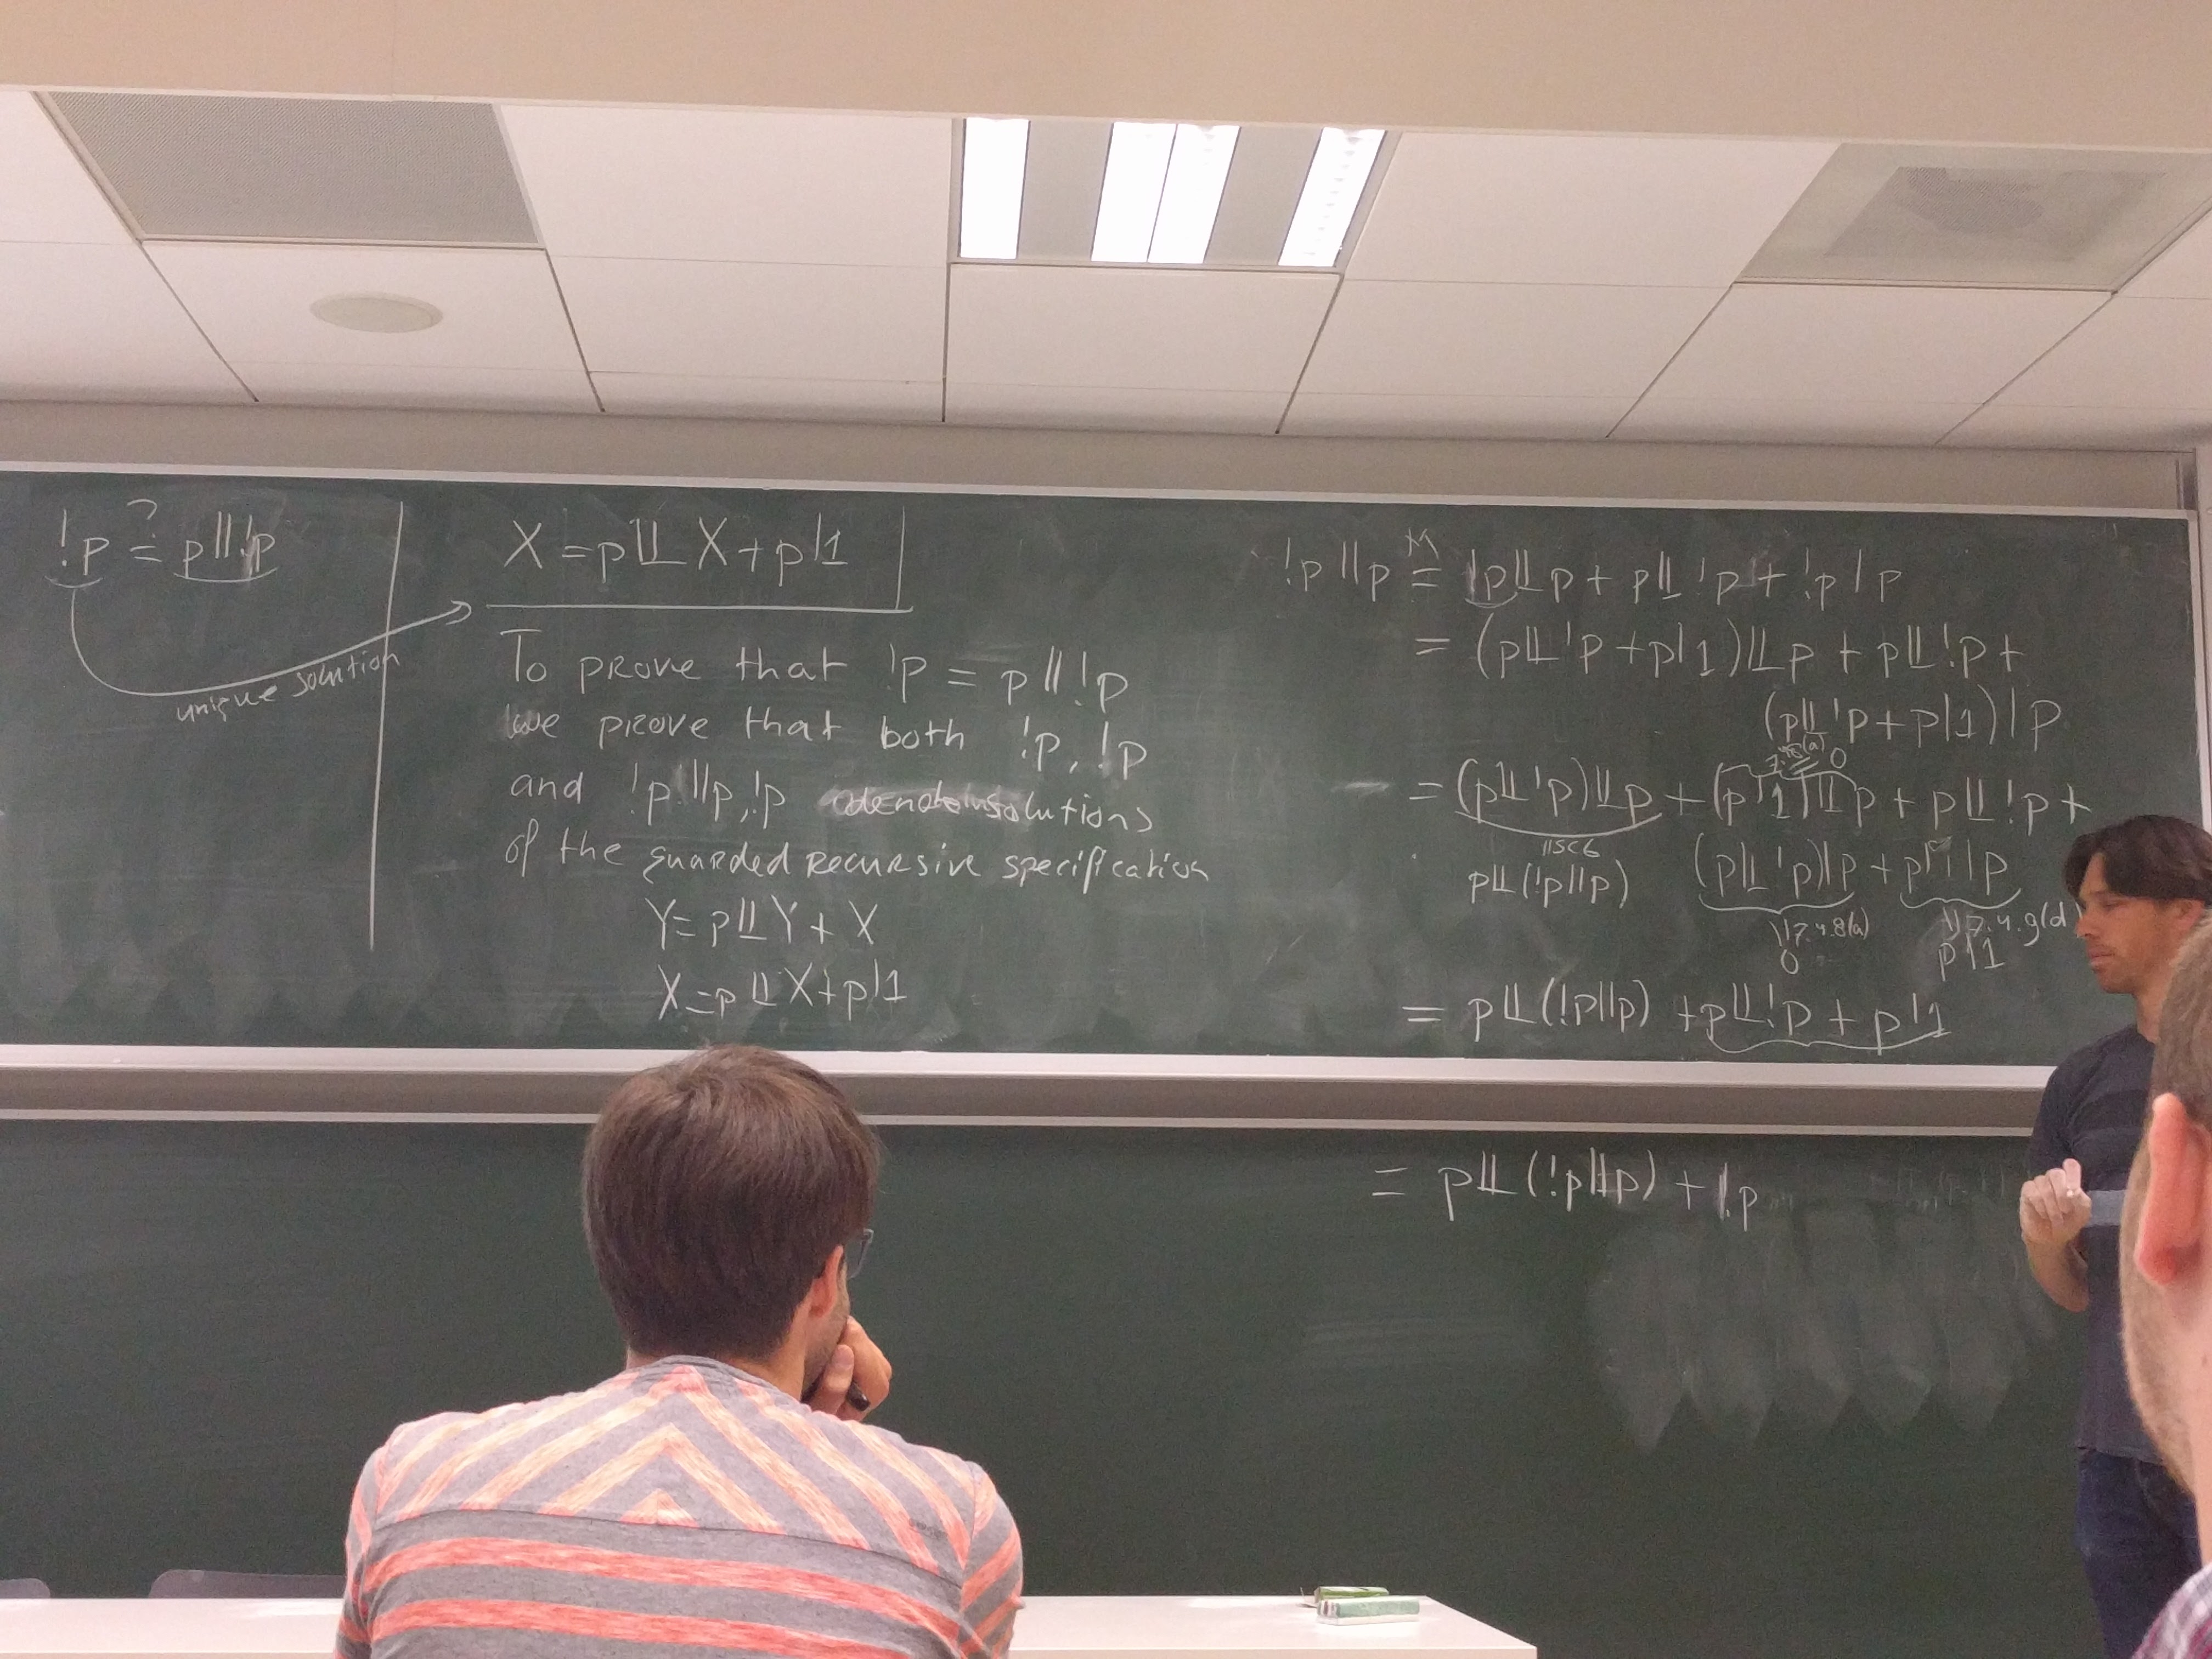 !p ≟ p||!p
unique solution
X = p⌊⌊X + p|1
To prove that !p = p||!p
we prove that both !p, !p
and !p||p, !p denote solutions
of the guarded recursive specification
Y = p⌊⌊Y + X
X = p⌊⌊X + p|1
!p||p =ᴹ !p⌊⌊p + p⌊⌊!p + !p|p
= (p⌊⌊!p + p|1)⌊⌊p + p⌊⌊!p +
(p⌊⌊!p + p|1)|p
0
= (p⌊⌊!p)⌊⌊p + (p|1)⌊⌊p + p⌊⌊!p +
|| SC6
p⌊⌊(!p||p)
(p⌊⌊!p)|p + p|1|p
|| 7.4.8(a)
0
|| 7.4.9(d)
p|1
= p⌊⌊(!p||p) + p⌊⌊!p + p|1
= p⌊⌊(!p||p) + !p